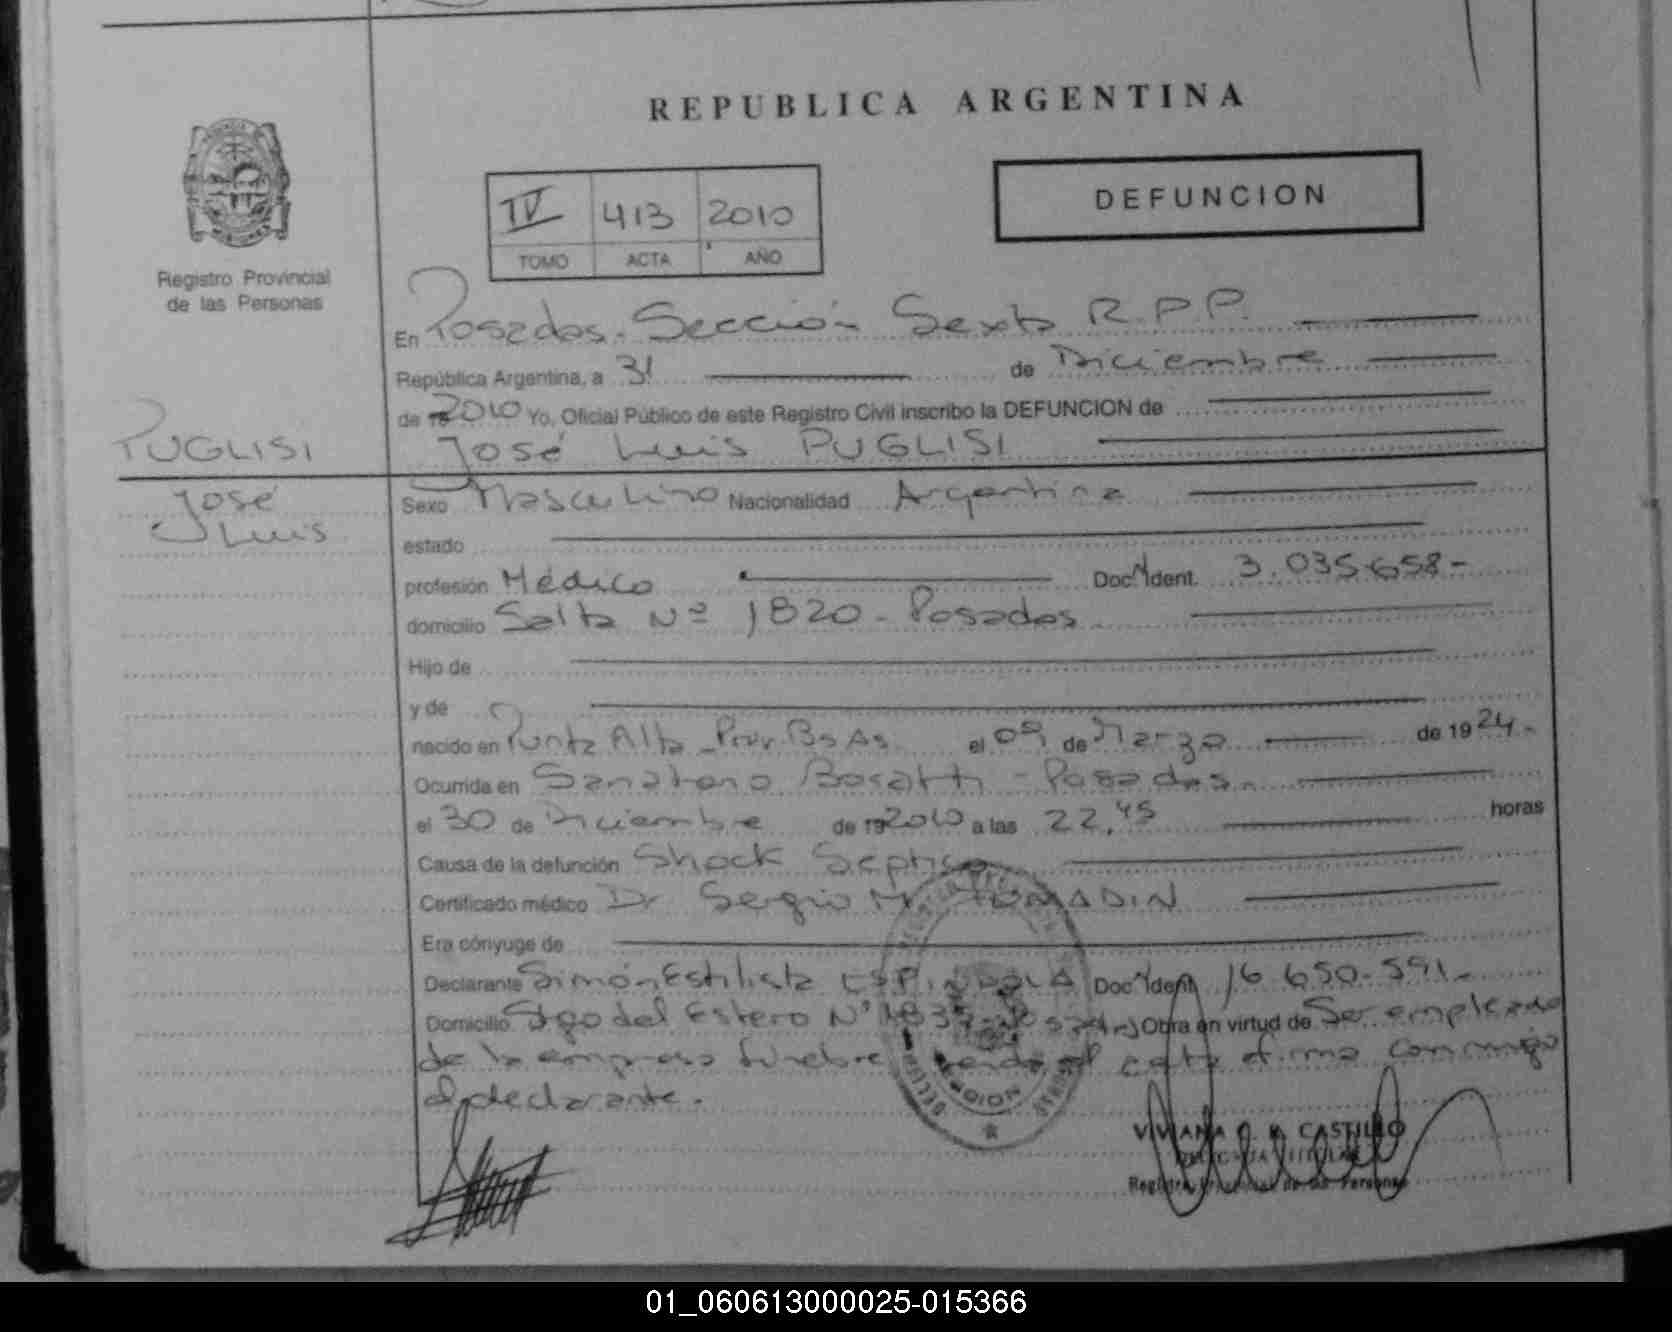 REPUBLICA ARGENTINA
IV 413 2010
TOMO ACTA AÑO
DEFUNCION
Registro Provincial
de las Personas
En Posadas. Sección Sexta R.P.P.
República Argentina, a 31 de Diciembre
de 2010 Yo, Oficial Público de este Registro Civil inscribo la DEFUNCION de
José Luis PUGLISI
PUGLISI
José
Luis
Sexo Masculino Nacionalidad Argentina
estado
profesión Médico Doc. Ident. 3.035.658-
domicilio Salta Nº 1820 - Posadas
Hijo de
y de
nacido en Punta Alta - Prov. Bs As. el 09 de Marzo de 1924.
Ocurrida en Sanatorio Bosatti - Posadas.
el 30 de Diciembre de 2010 a las 22,45 horas
Causa de la defunción Shock Septico
Certificado médico Dr Sergio M. TOMADIN
Era cónyuge de
Declarante Simón Estilista ESPINDOLA Doc. Ident. 16.650.591-
Domicilio Stgo del Estero Nº Posadas Obra en virtud de Ser empleado
de la empresa fúnebre acta firma conmigo
el declarante.
VIVIANA CASTILLO
DELEGADA TITULAR
Registro Provincial de las Personas
01_060613000025-015366